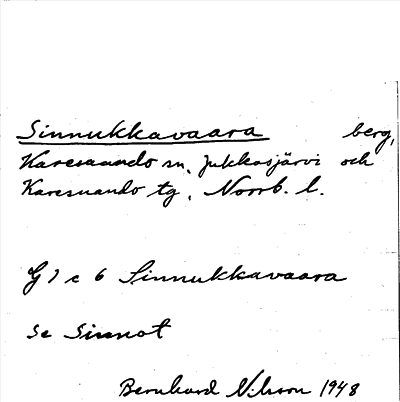 Sinnukkavaara berg,
Karesuando sn, Jukkasjärvi och
Karesuando tg, Norrb. l.
G 1 c 6 Sinnukkavaara
Se Sinnot
Bernhard Nilsson 1948